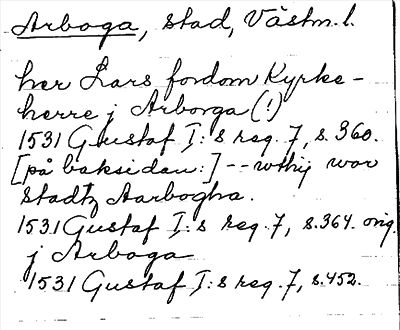 Arboga, stad, Västm. l.
her Lars fordom Kyrke-
herre j Arborga (!)
1531 Gustaf I:s reg. 7, s. 360.
[på baksidan:] -- wthij wor
Stadtz Aarbogha.
1531 Gustaf I:s reg. 7, s. 364. orig.
j Arboga
1531 Gustaf I:s reg. 7, s. 452.